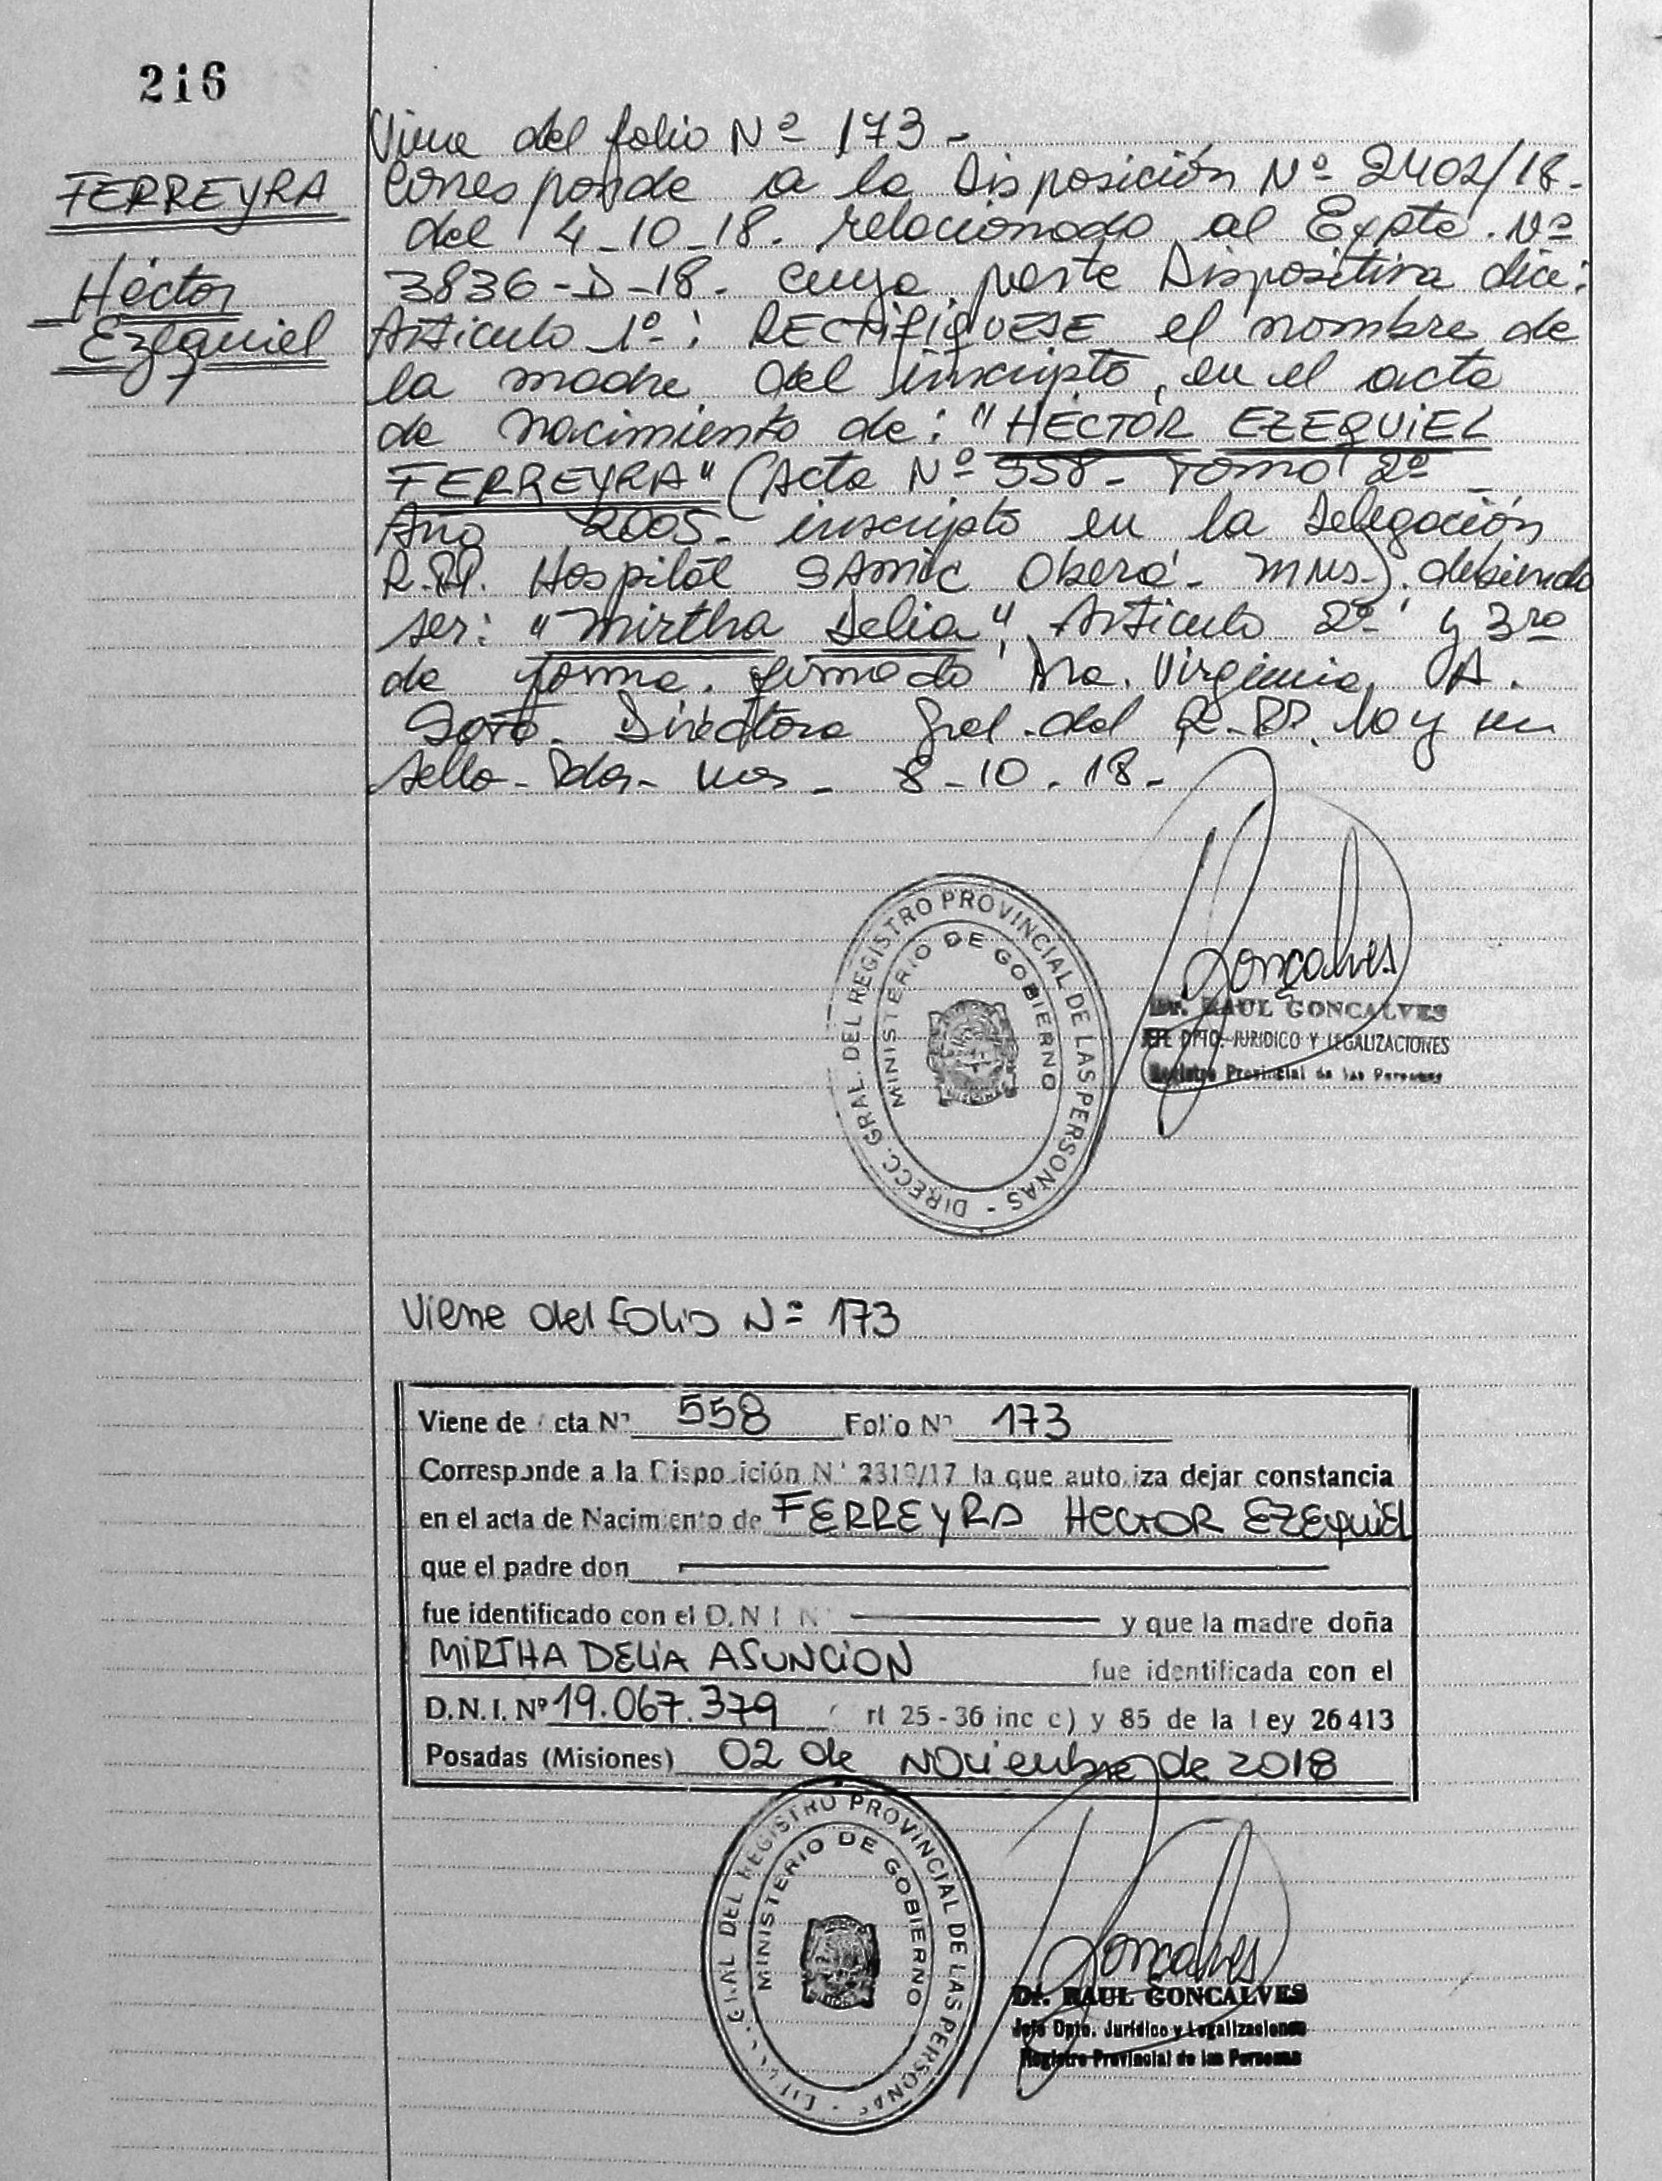 216
FERREYRA
Héctor
Ezequiel
Viene del folio Nº 173 -
Corresponde a la Disposición Nº 2402/18-
del 4-10-18. relacionado al Expte. Nº
3836-D-18- cuya parte Dispositiva dice:
Artículo 1º: RECTIFIQUESE el nombre de
la madre del inscripto, en el acta
de nacimiento de: "HÉCTOR EZEQUIEL
FERREYRA" (Acta Nº 558- Tomo 2º
Año 2005- inscripto en la Delegación
R.P. Hospital SAMIC Oberá- Mnes). debiendo
ser: "Mirtha Delia", Artículo 2º y 3ro
de forma. firmado Dra. Virginia A.
Soto. Directora Gral. del R.P. Hay un
sello- Pdas- Mnes - 8-10-18-
DIRECC. GRAL. DEL REGISTRO PROVINCIAL DE LAS PERSONAS -
MINISTERIO DE GOBIERNO
Gonçalves
Dr. RAUL GONCALVES
JEFE DPTO. JURIDICO Y LEGALIZACIONES
Registro Provincial de las Personas
Viene del folio Nº 173
Viene de cta Nº 558 Folio Nº 173
Corresponde a la Disposición Nº 2319/17 la que autoriza dejar constancia
en el acta de Nacimiento de FERREYRA HECTOR EZEQUIEL
que el padre don
fue identificado con el D.N.I. Nº y que la madre doña
MIRTHA DELIA ASUNCION fue identificada con el
D.N.I. Nº 19.067.379 rt 25-36 inc c) y 85 de la Ley 26413
Posadas (Misiones) 02 de Noviembre de 2018
GRAL DEL REGISTRO PROVINCIAL DE LAS PERSONAS -
MINISTERIO DE GOBIERNO
Gonçalves
Dr. RAUL GONCALVES
Jefe Dpto. Jurídico y Legalizaciones
Registro Provincial de las Personas